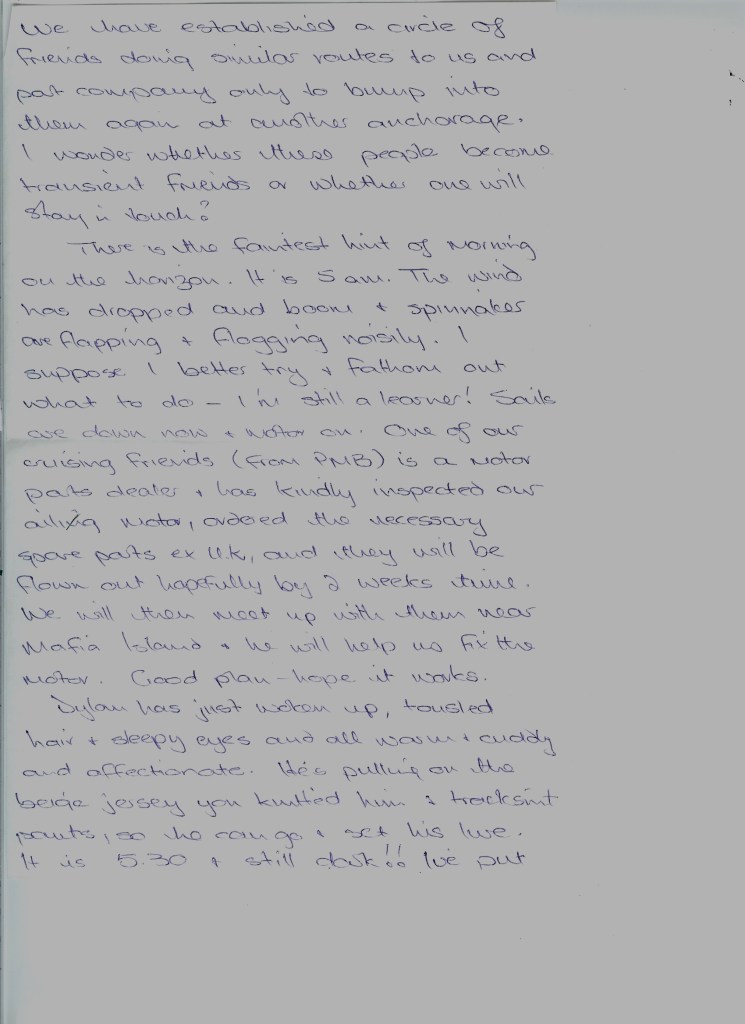 We have established a circle of
friends doing similar routes to us and
part company only to bump into
them again at another anchorage.
I wonder whether these people become
transient friends or whether one will
stay in touch?
There is the faintest hint of morning
on the horizon. It is 5 am. The wind
has dropped and boom + spinnaker
are flapping + flogging noisily. I
suppose I better try + fathom out
what to do – I'm still a learner! Sails
are down now + motor on. One of our
cruising friends (from PMB) is a motor
parts dealer + has kindly inspected our
ailing motor, ordered the necessary
spare parts ex U.K, and they will be
flown out hopefully by 2 weeks time.
We will then meet up with them near
Mafia Island + he will help us fix the
motor. Good plan – hope it works.
Dylan has just woken up, tousled
hair + sleepy eyes and all warm + cuddy
and affectionate. He's pulling on the
beige jersey you knitted him + tracksuit
pants, so he can go + set his line.
It is 5.30 + still dark!! I've put